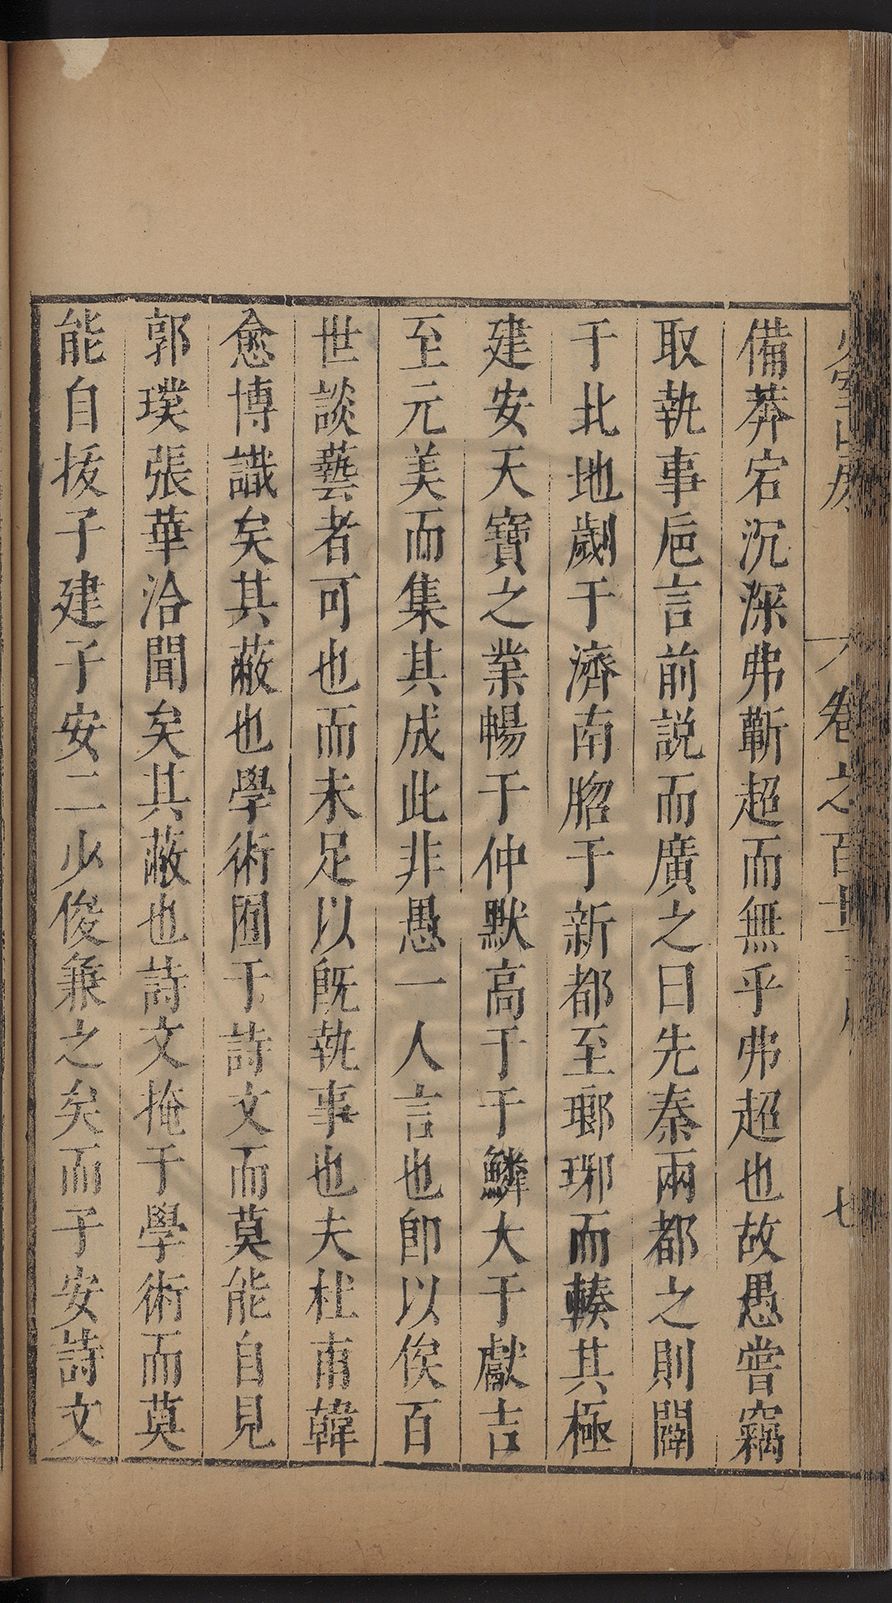 備莽宕沉深弗斬超而無乎弗超也故愚嘗竊
取執事巵言前説而廣之曰先秦兩都之則闢
于北地劌于濟南㫚于新都至瑯琊而輳其極
建安天寶之業暢于仲默高于于鱗大于獻吉
至元美而集其成此非愚一人言也卽以俟百
世談藝者可也而未足以旣執事也夫杜甫韓
愈博識矣其蔽也學術囿于詩文而莫能自見
郭璞張華洽聞矣其蔽也詩文掩于學術而莫
能自拔子建子安二少俊兼之矣而子安詩文